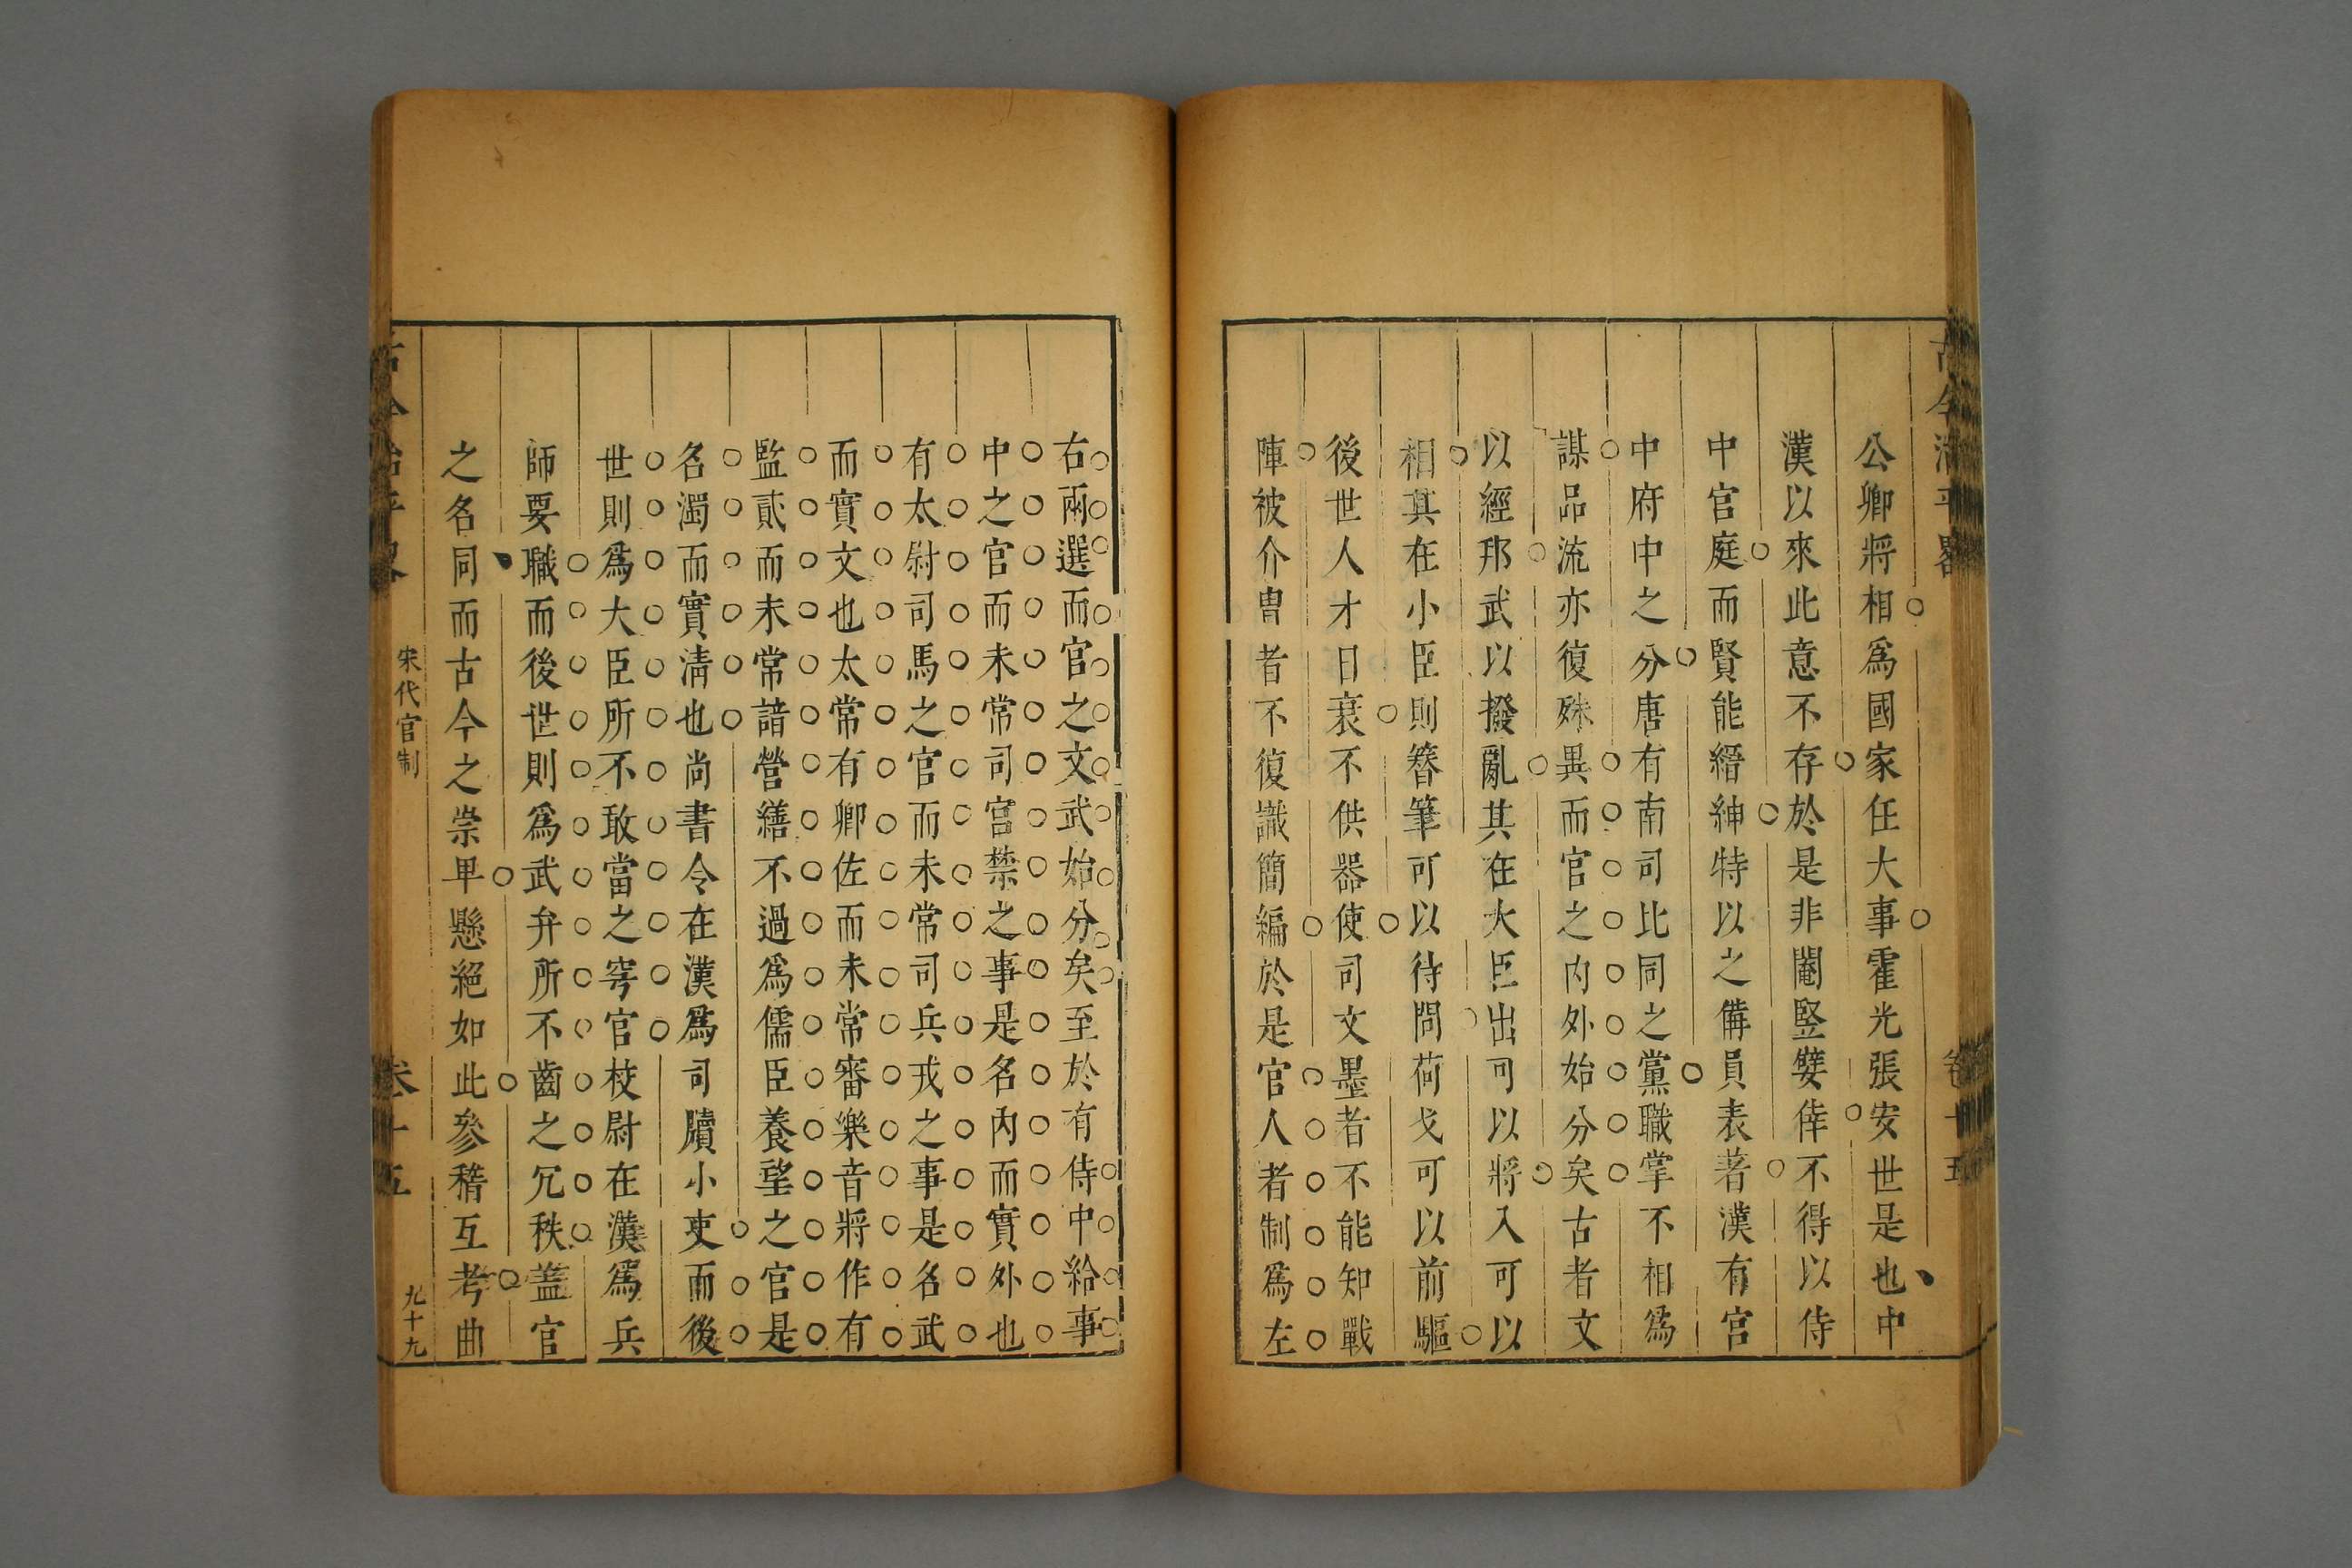 公卿將相爲國家任大事霍光張安世是也中
漢以來此意不存於是非閹竪嬖倖不得以侍
中官庭而賢能縉紳特以之備員表著漢有宮
中府中之分唐有南司比同之黨職掌不相爲
謀品流亦復殊異而官之內外始分矣古者文
以經邦武以撥亂其在大臣出可以將入可以
相其在小臣則簪筆可以待問荷戈可以前驅
後世人才日衰不供器使司文墨者不能知戰
陣被介冑者不復識簡編於是官人者制爲左
右兩選而官之文武始分矣至於有侍中給事
中之官而未常司宮禁之事是名內而實外也
有太尉司馬之官而未常司兵戎之事是名武
而實文也太常有卿佐而未常審樂音將作有
監貳而未常諳營繕不過爲儒臣養望之官是
名濁而實清也尚書令在漢爲司牘小吏而後
世則爲大臣所不敢當之穹官校尉在漢爲兵
師要職而後世則爲武弁所不齒之冗秩蓋官
之名同而古今之崇卑懸絕如此參稽互考曲
古今治平畧
宋代官制
卷十五
九十九